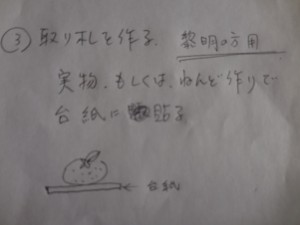 ③ 取り札を作る. 黎明の方用
実物、もしくは、ねんど作りで
台紙に貼る
← 台紙